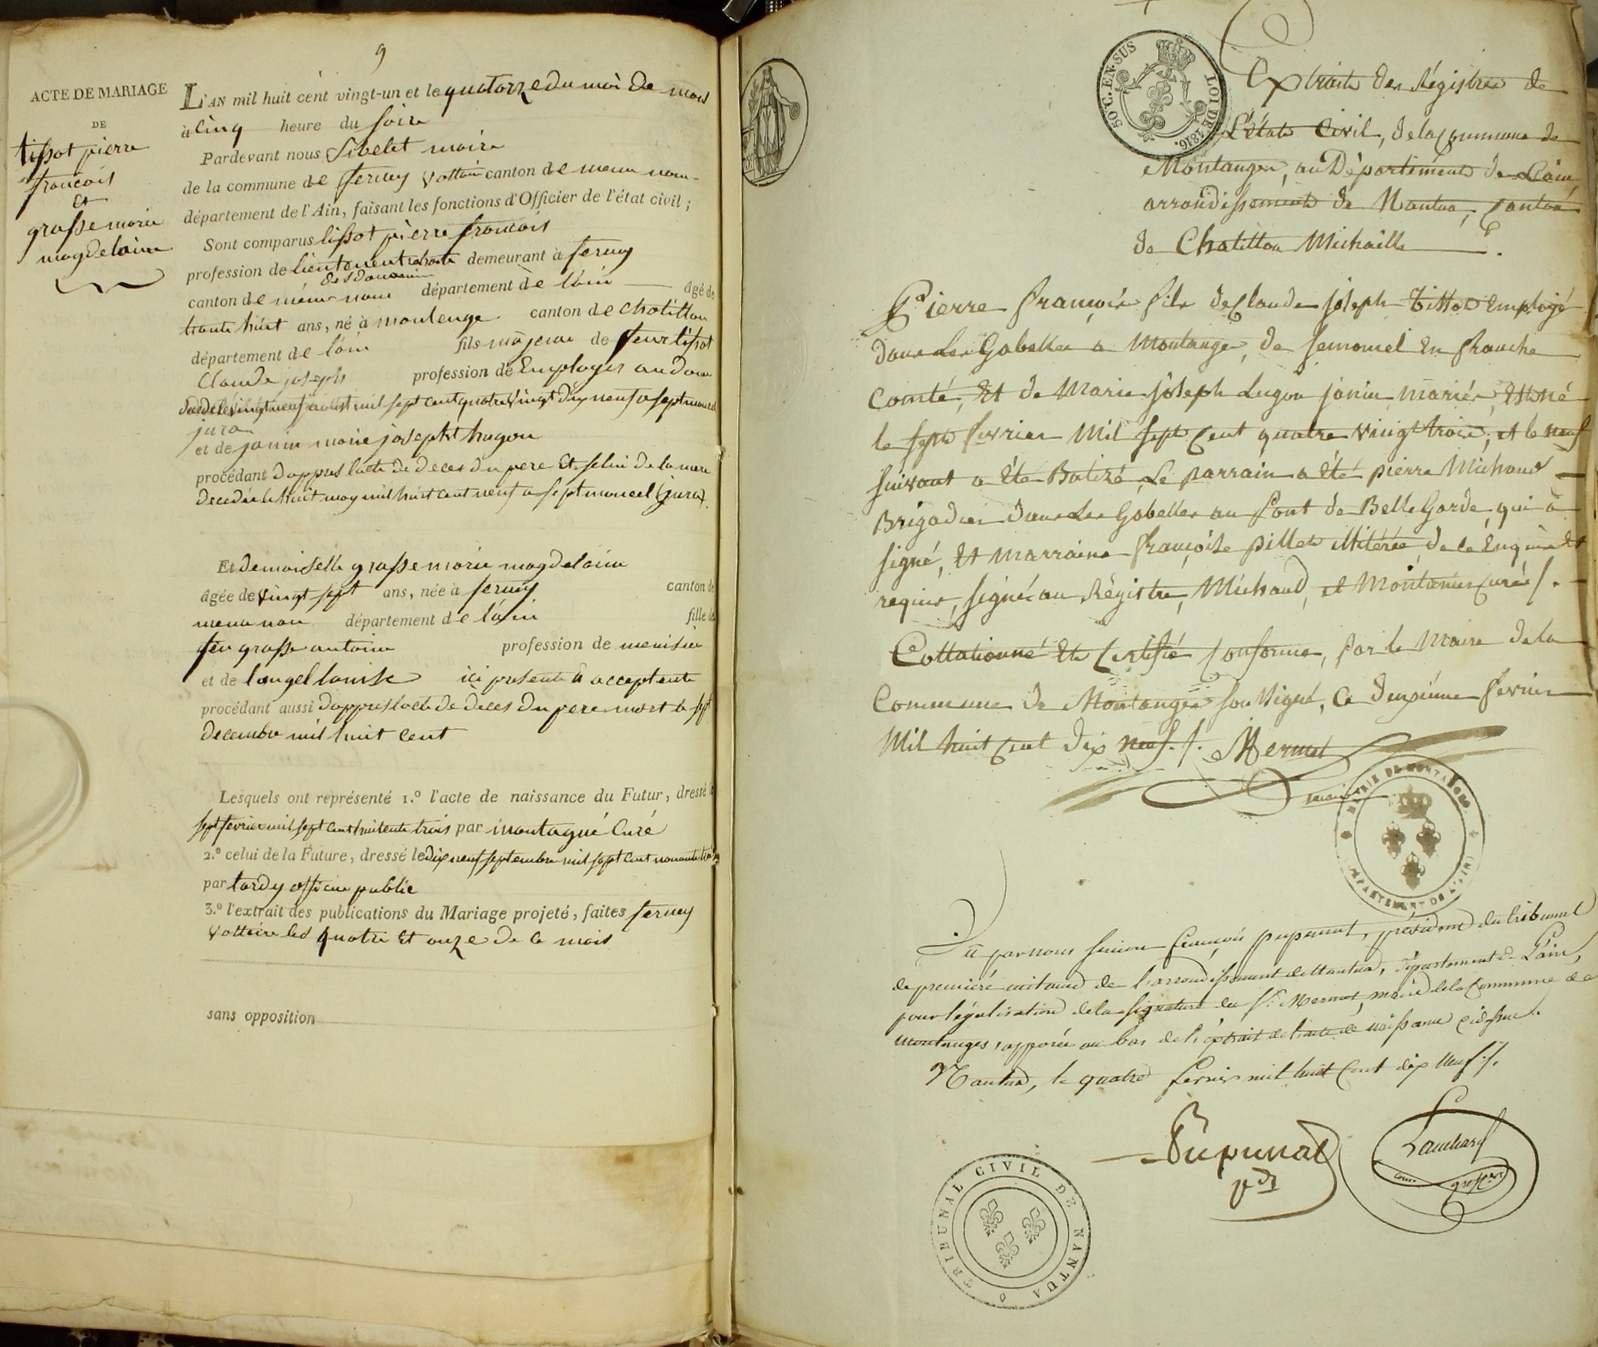 9
ACTE DE MARIAGE
DE
tissot pierre
francois
et
grasse marie
magdelaine
L'AN mil huit cent vingt-un et le quatorze du moi de mars
à cinq heure du soire
Pardevant nous Sibelet maire
de la commune de ferney voltair canton de meme nom
département de l'Ain, faisant les fonctions d'Officier de l'état civil;
Sont comparus tissot pierre francois
profession de lieutenent demeurant à ferney
canton de méme nom département de l'ain âgé de
trante huit ans, né à montenge canton de chatillon
département de l'ain fils majeur de feux tissot
Claude joseph profession de Employer au douane
vingt neuf aoust mil sept cent quatre vingt dix neuf a septmoncel
jura
et de janin marie joseph hugon
procédant d'appres l'acte de deces du pere et selui de la mere
decedée le huit may mil huit cent neuf a septmoncel (jura).
Et demoiselle grasse marie magdelaine
âgée de vingt sept ans, née à ferney canton de
meme nom département de l'ain fille de
feu grasse antoine profession de menisier
et de longet louise ici presente et acceptente
procédant aussi d'appres l'acte de deces du pere mort le sept
decembre mil huit cent
Lesquels ont représenté 1.º l'acte de naissance du Futur, dressé le
sept fevrier mil sept cent huitente trois par montagné Curé
2.º celui de la Future, dressé le dix neuf septembre mil sept cent nonante trois
par tardy officier public
3.º l'extrait des publications du Mariage projeté, faites ferney
voltaire les quatre et onze de ce mois
sans opposition
50 C. EN. SUS
LOI DE 1816.
Extraits des Régistres de
L'état Civil, de la Commune de
Montanges, au Département de L'ain,
arrondissement de Nantua, Canton
de Chatillon Michaille.
Pierre françois fils de Claude joseph Tissot Employé
dans les Gabelles a Montange, de semoncel en franche
Comté, et de Marie joseph Lugon janin mariés, est né
le sept fevrier Mil sept Cent quatre vingt trois, et le neuf
suivant a été Batizé, Le parrain a été pierre Michaud
Brigadier dans les Gabelles au Pont de Belle Garde, qui a
signé, et marraine françoise pillet illitérée de ce enquise et
requise, signé au Régistre, Michaud, et Montanier Curé.
Collationné et Certifié Conforme, par le Maire de la
Commune de Montanges soussigné, Ce deuxieme fevrier
Mil huit Cent dix neuf. Mermet
maire
MAIRIE DE MONTANGES
DÉPARTEMENT DE L'AIN
Vu par nous Simon François pupunat, président du tribunal
de première instance de l'arrondissement de Nantua, département de L'ain,
pour légalisation de la signature du Sr. Mermet, maire de la Commune de
Montanges, apposée au bas de l'extrait de l'acte de naissance ci dessus.
Nantua, le quatre fevrier mil huit Cent dix neuf.
Pupunat
TRIBUNAL CIVIL DE NANTUA